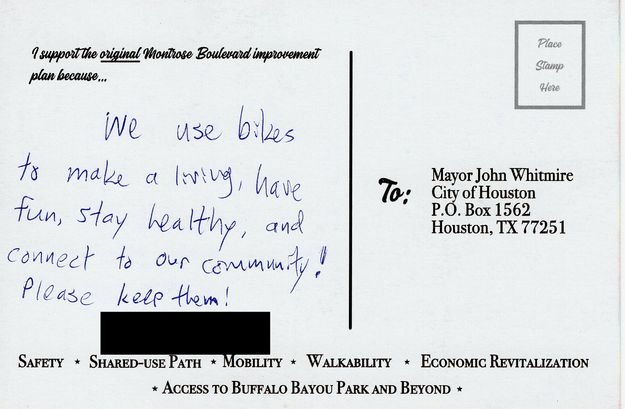 I support the original Montrose Boulevard improvement
plan because...
We use bikes
to make a living, have
fun, stay healthy, and
connect to our community!
Please keep them!
Place
Stamp
Here
To:
Mayor John Whitmire
City of Houston
P.O. Box 1562
Houston, TX 77251
SAFETY ⋆ SHARED-USE PATH ⋆ MOBILITY ⋆ WALKABILITY ⋆ ECONOMIC REVITALIZATION
⋆ ACCESS TO BUFFALO BAYOU PARK AND BEYOND ⋆